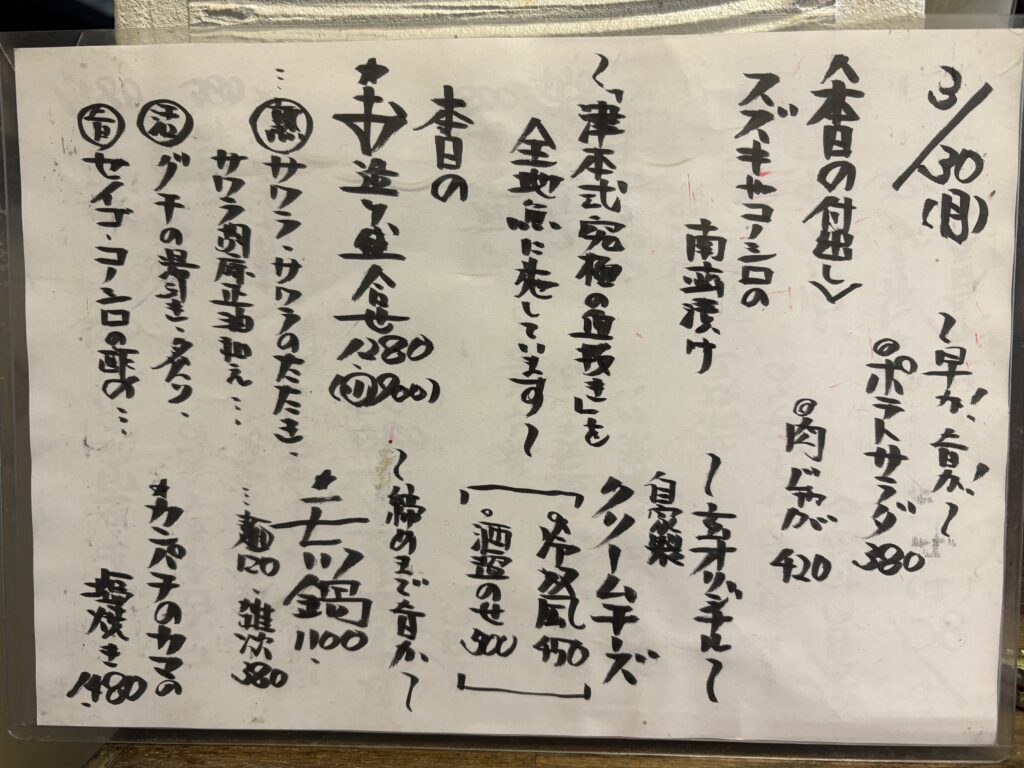 3/30(月)
〈本日の付出し〉
スズキやコノシロの
南蛮漬け
～「津本式究極の血抜き」を
全地点に施しています～
本日の
★お造り盛合せ
1280
900)
…熟 サワラ・サワラのたたき、
サワラ肉麻正油和え…
活 グチの湯引き、炙り、
旨 セイゴ・コノシロの酢〆…
～早か！旨か！～
◎ポテトサラダ
380
◎肉じゃが
420
～玄オリジナル～
自家製
クリームチーズ
冷奴風
450
酒盗のせ
500
～締めまで旨か～
★もつ鍋
1100
…麺120・雑炊380
★カンパチのカマの
塩焼き
1480